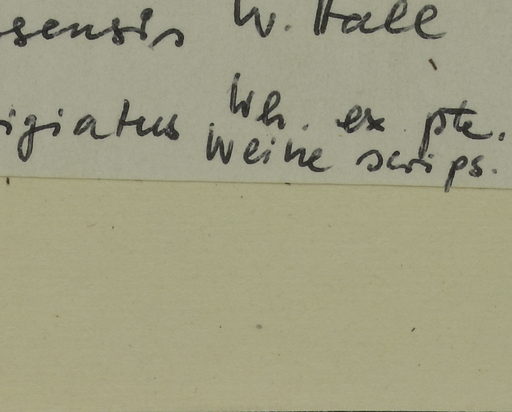 sensis W. Hall
igiatus Wh. ex pte.
Weihe scrips.